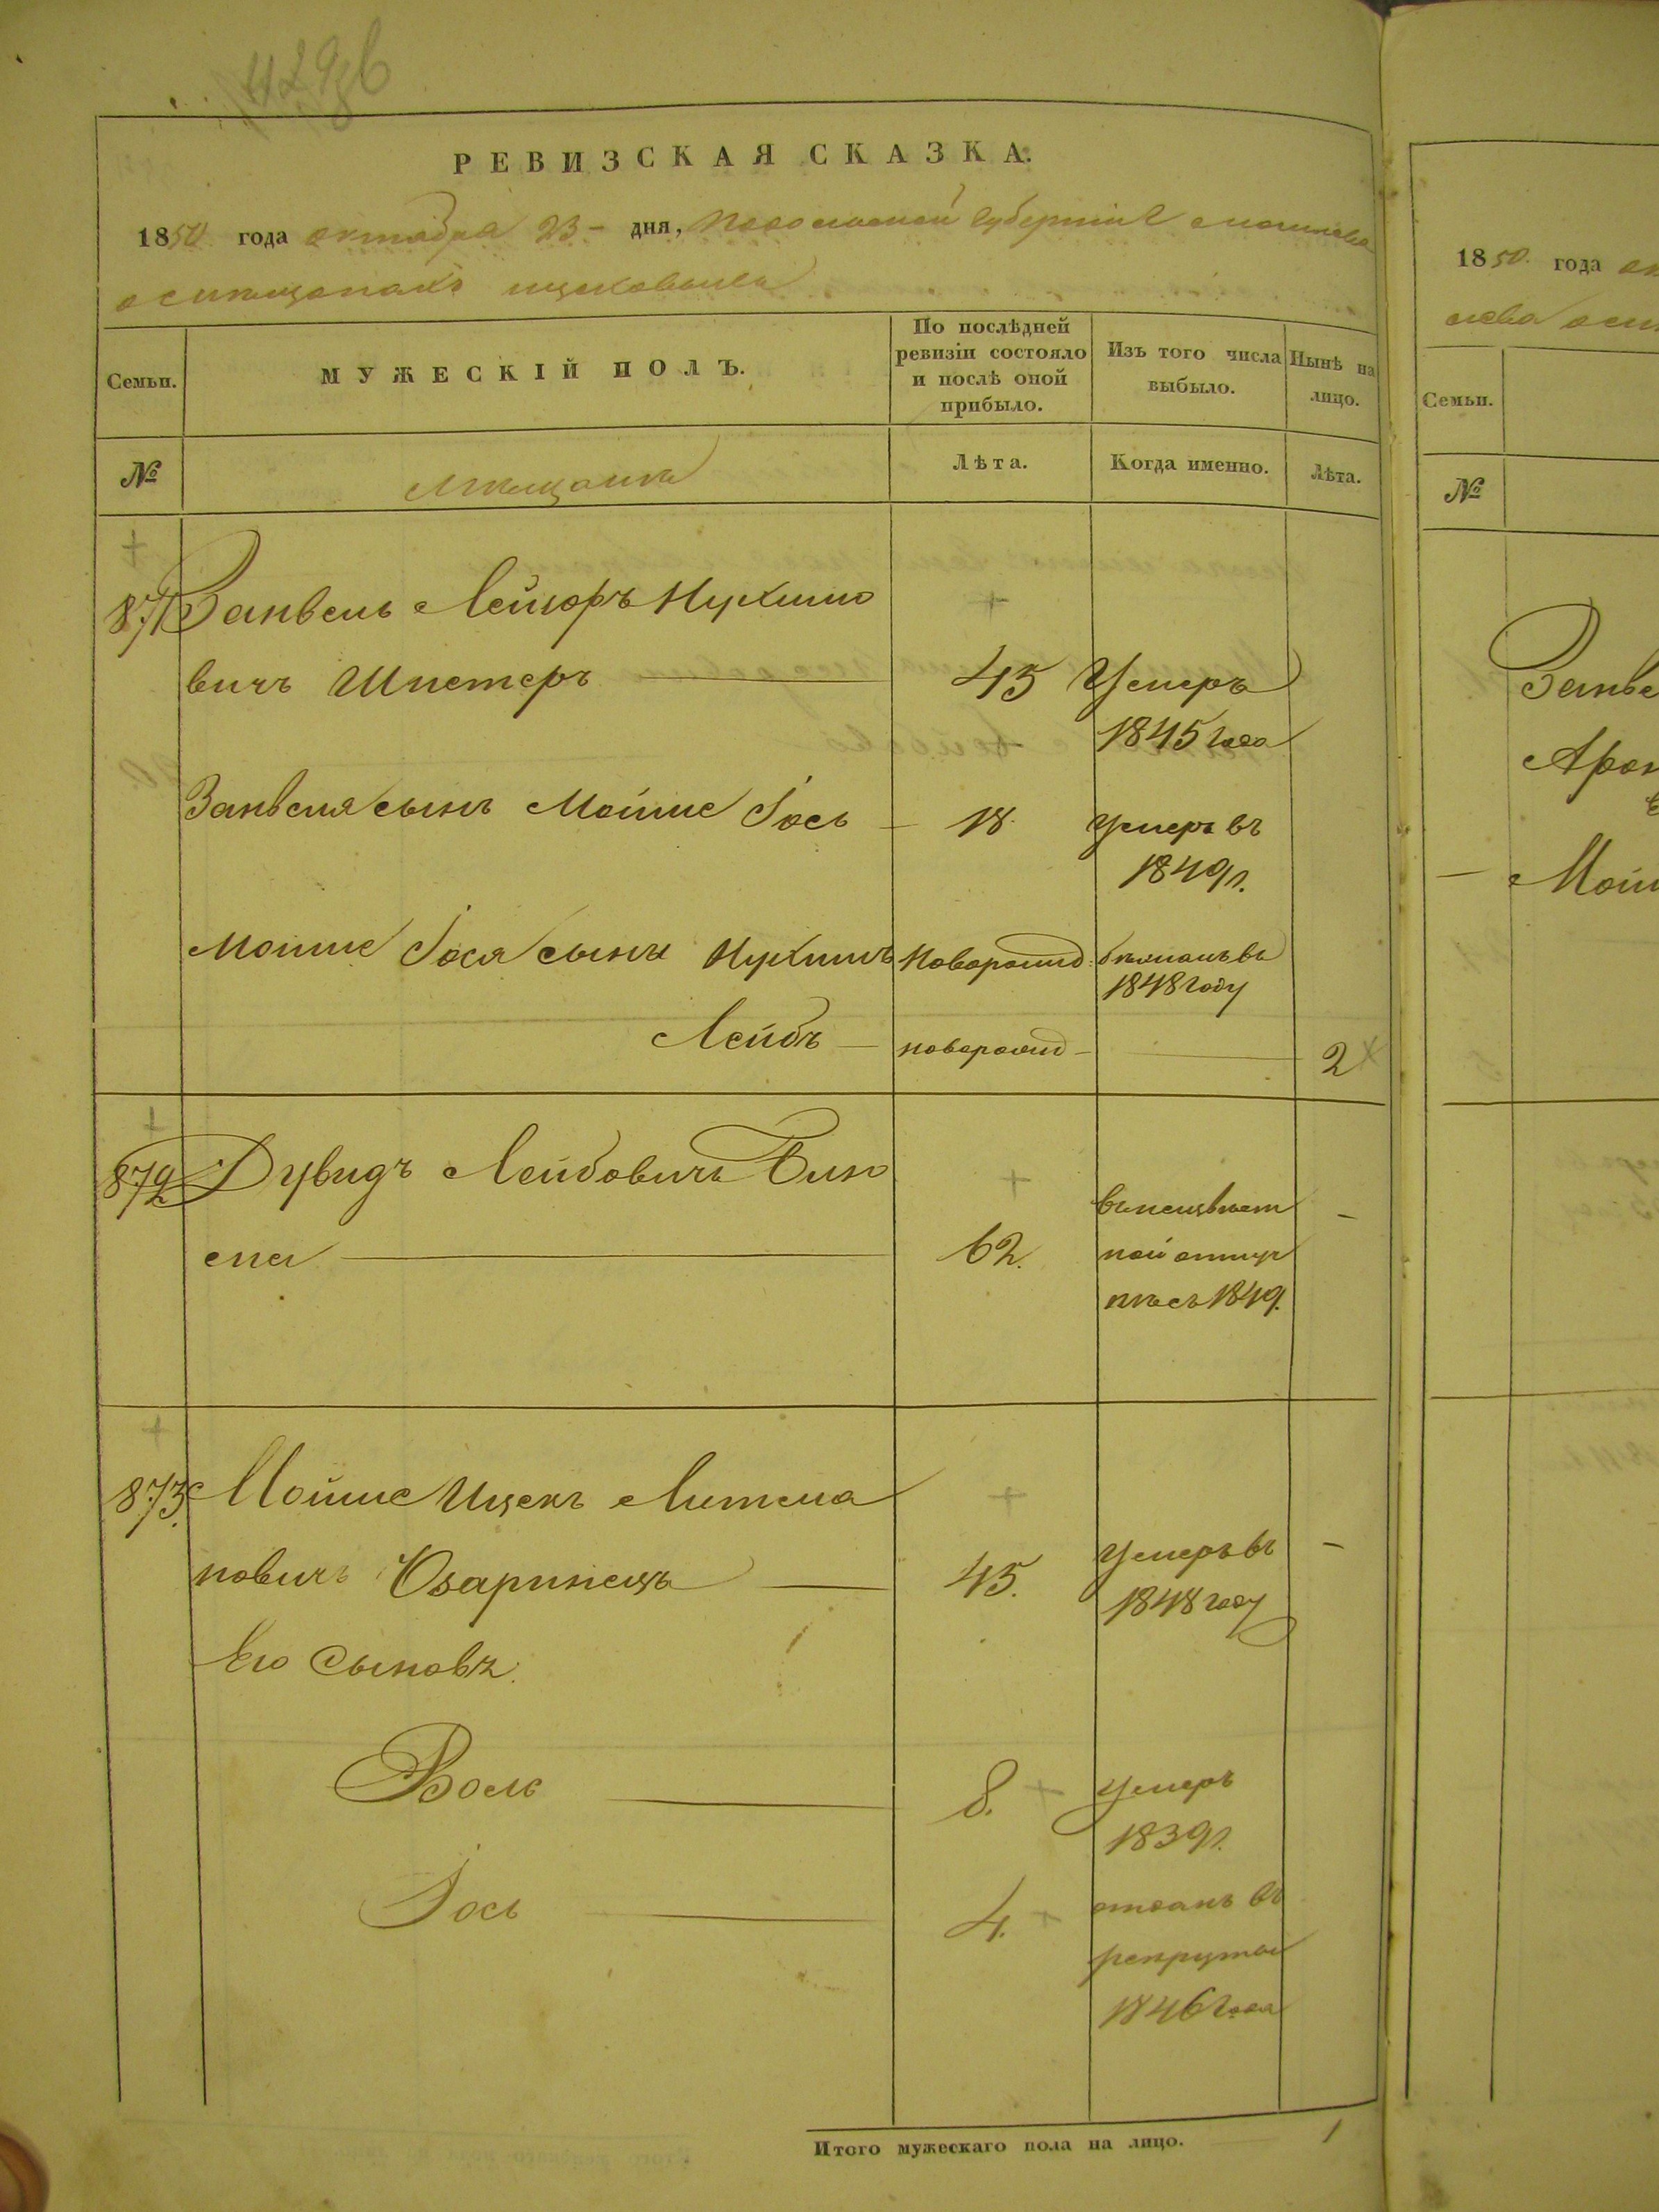 РЕВИЗСКАЯ СКАЗКА.
1850 года октября 23 - дня, Подольской губернии Могилева
о мещанахъ
Семьи.
МУЖЕСКІЙ ПОЛЪ.
По послѣдней ревизіи состояло и послѣ оной прибыло.
Изъ того числа выбыло.
Нынѣ на лицо.
№
Мѣщане
Лѣта.
Когда именно.
Лѣта.
871 Занвель Лейзоръ Нухимо
вичъ Шпетеръ 45 Умеръ
1845 года
Занвеля сынъ Мойше Іось 18 умеръ въ
1849 г.
Мойше Іося сыны Нухимъ новорожд. въ
1848 году
Лейбъ новорожд 2
872 Дувидъ Лейбовичъ
62. въ неизвѣст
ной отлуч
кѣ съ 1849.
873. Мойше Ицекъ Литма
новичъ Озаринецъ 45. умеръ въ
1848 году
Его Сыновя
Волъ 8. умеръ
1839 г.
Іось 4. отданъ въ
рекруты
1846 года
Итого мужескаго пола на лицо. 1
1850. года
Семьи.
№
Занве
Арон
Мойш